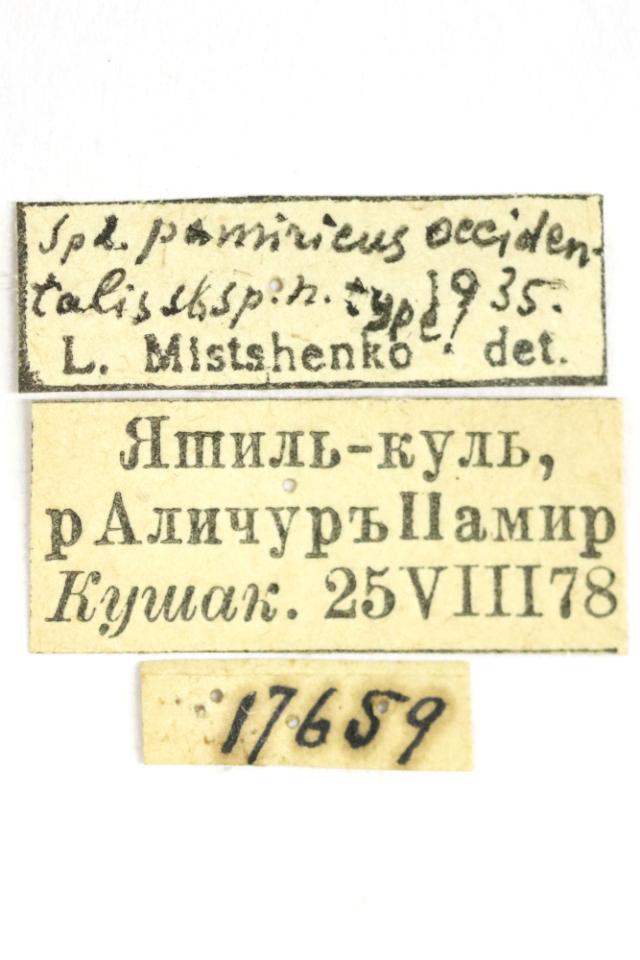 Sph. pamiricus occiden-
talis sbsp. n. type! 935.
L. Mistshenko det.
Яшиль-куль,
р Аличуръ Памир
Кушак. 25 VIII 78
17659